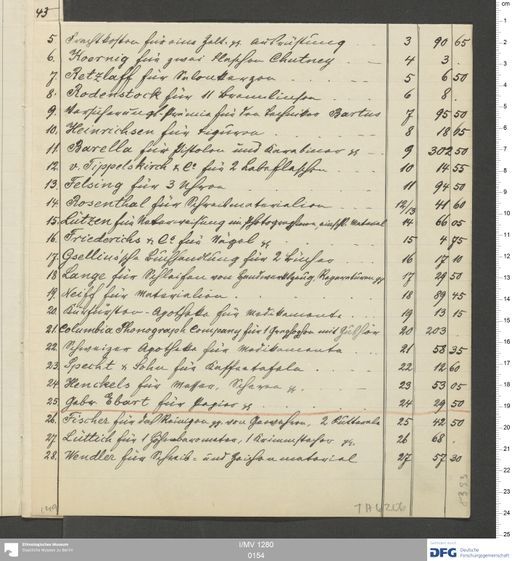 43
5. Frachtkosten für eine Zelt. pp. Ausrüstung 3 90 65
6. Koernig für zwei Flaschen Chutney 4 3 .
7. Retzlaff für 5 6 50
8. Rodenstock für 11 6 8 .
9. Versicherungs-Prämie für den Techniker Bartus 7 95 50
10. Heinrichsen für 8 18 95
11. Barella für Pistolen und Karabiner pp 9 302 50
12. v. Tippelskirch & Co für 2 Labeflaschen 10 14 55
13. Felsing für 3 Uhren 11 94 50
14. Rosenthal für Schreibmaterialien 12/13 41 60
15. Lützen für Unterweisung im Photographieren, einschl. Material 14 66 05
16. Friederichs & Co für Nägel pp 15 4 75
17. Gsellius'sche Buchhandlung für 2 Bücher 16 17 10
18. Lange für Schleifen von Handwerkzeug, Reparaturen pp 17 29 50
19. Neiff für Materialien 18 89 45
20. Kurfürsten-Apotheke für Medikamente 19 13 15
21. Columbia Phonograph Company für 1 mit 20 203 .
22. Schweizer Apotheke für Medikamente 21 58 35
23. Specht & Sohn für Kaffeetafeln 22 12 60
24. Henckels für Messer, Scheren pp. 23 53 05
25. Gebr. Ebart für Papier pp 24 29 50
26. Fischer für das Reinigen pp von Gewehren, 2 Futterale 25 42 50
27. Lüttich für 1 1 pp. 26 68 .
28. Wendler für Schreib- und Zeichenmaterial 27 57 30
I/MV 1280
0154
Ethnologisches Museum
Staatliche Museen zu Berlin
DFG Deutsche
Forschungsgemeinschaft